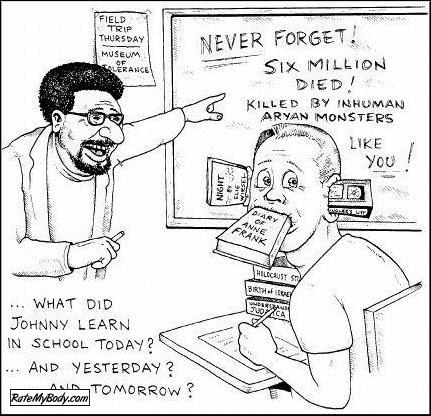 FIELD
TRIP
THURSDAY
MUSEUM
OF
TOLERANCE
NEVER FORGET!
SIX MILLION
DIED!
KILLED BY INHUMAN
ARYAN MONSTERS
LIKE
YOU!
NIGHT
BY
ELIE
WIESEL
DIARY
OF
ANNE
FRANK
HOLOCAUST
BIRTH OF ISRAEL
JUDAICA
... WHAT DID
JOHNNY LEARN
IN SCHOOL TODAY?
... AND YESTERDAY?
AND TOMORROW?
RateMyBody.com